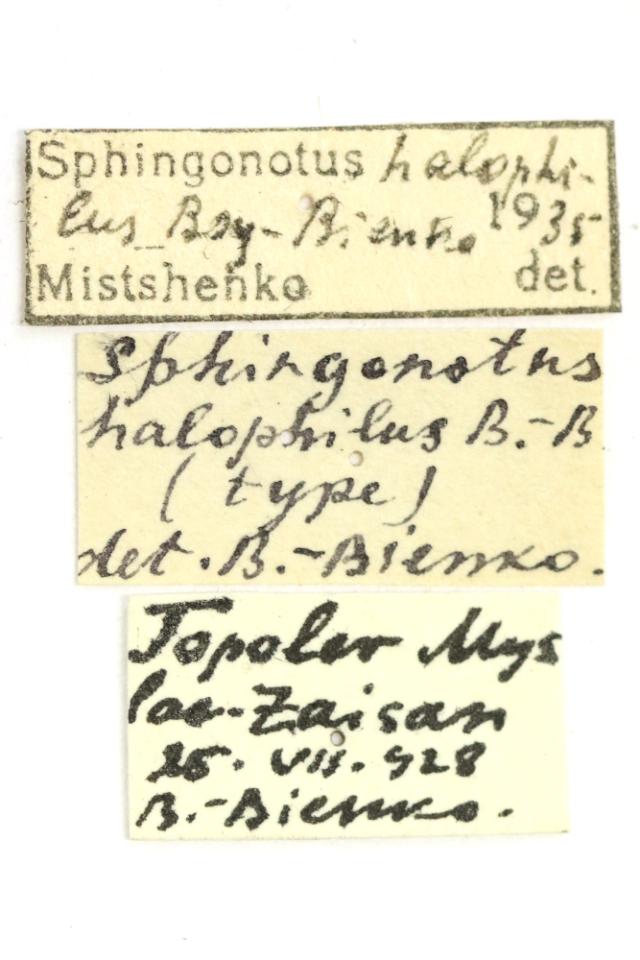 Sphingonotus halophi-
lus Bey-Bienko 1935
Mistshenko det.
Sphingonotus
halophilus B.-B
(type)
det. B.-Bienko.
Topolev Mys
lac-Zaisan
25. VII. 928
B.-Bienko.